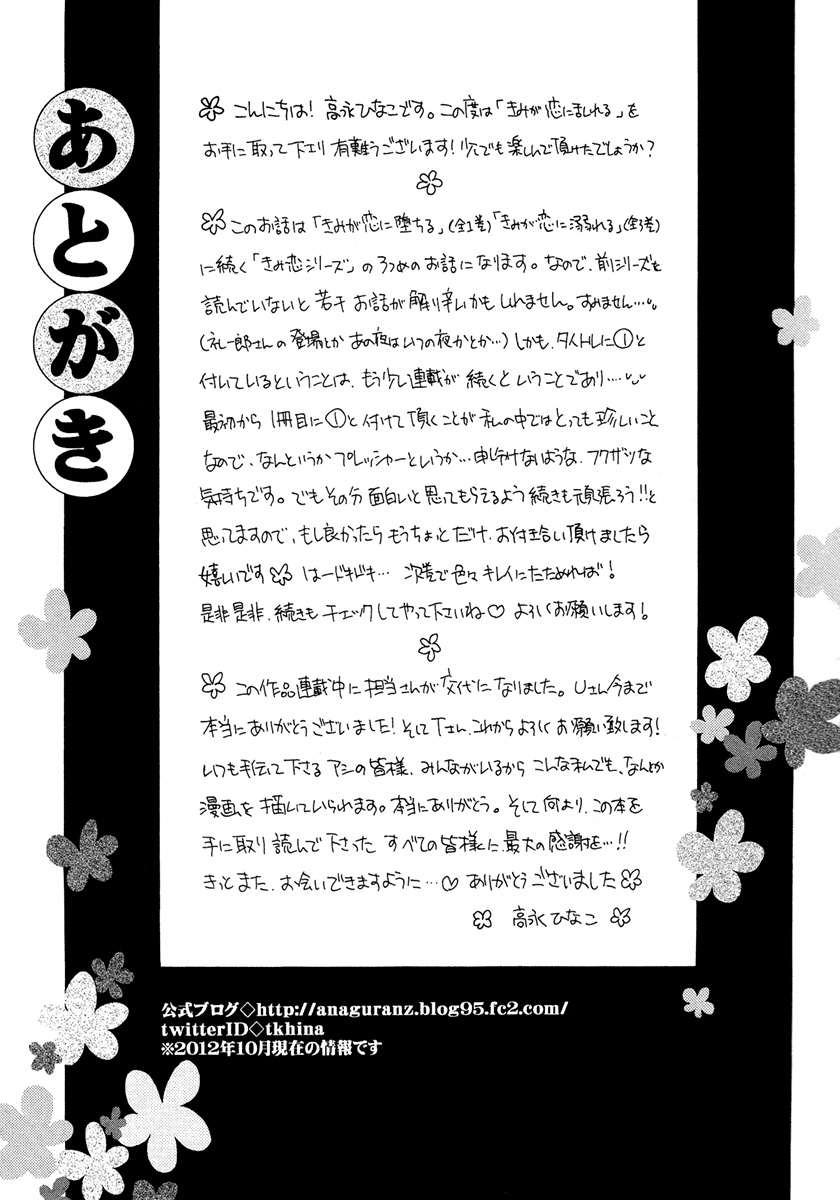 あとがき
こんにちは！高永ひなこです。この度は「きみが恋にまみれる」を
お手に取って下さり有難うございます！少しでも楽しんで頂けたでしょうか？
このお話は「きみが恋に堕ちる」(全1巻)「きみが恋に溺れる」(全3巻)
に続く「きみ恋シリーズ」の3つめのお話になります。なので、前シリーズを
読んでいないと若干お話が解り辛いかもしれません。すみません…
(礼一郎さんの登場とかあの夜はいつの夜かとか…)しかも、タイトルに①と
付いているということは、もう少し連載が続くということであり……
最初から1冊目に①と付けて頂くことが私の中ではとっても珍しいこと
なので、なんというかプレッシャーというか…申し訳ないような、フクザツな
気持ちです。でもその分面白いと思ってもらえるよう続きも頑張ろう!!と
思ってますので、もし良かったらもうちょっとだけ、お付き合い頂けましたら
嬉しいです はードキドキ… 次巻で色々キレイにたためれば！
是非是非、続きもチェックしてやって下さいね♡ よろしくお願いします！
この作品連載中に担当さんが交代になりました。Uさん今まで
本当にありがとうございました！そしてTさん、これからよろしくお願い致します！
いつも手伝って下さるアシの皆様、みんながいるからこんな私でも、なんとか
漫画を描いていられます。本当にありがとう。そして何より、この本を
手に取り読んで下さったすべての皆様に、最大の感謝を…!!
きっとまた、お会いできますように…♡ ありがとうございました
高永ひなこ
公式ブログ◇http://anaguranz.blog95.fc2.com/
twitterID◇tkhina
※2012年10月現在の情報です